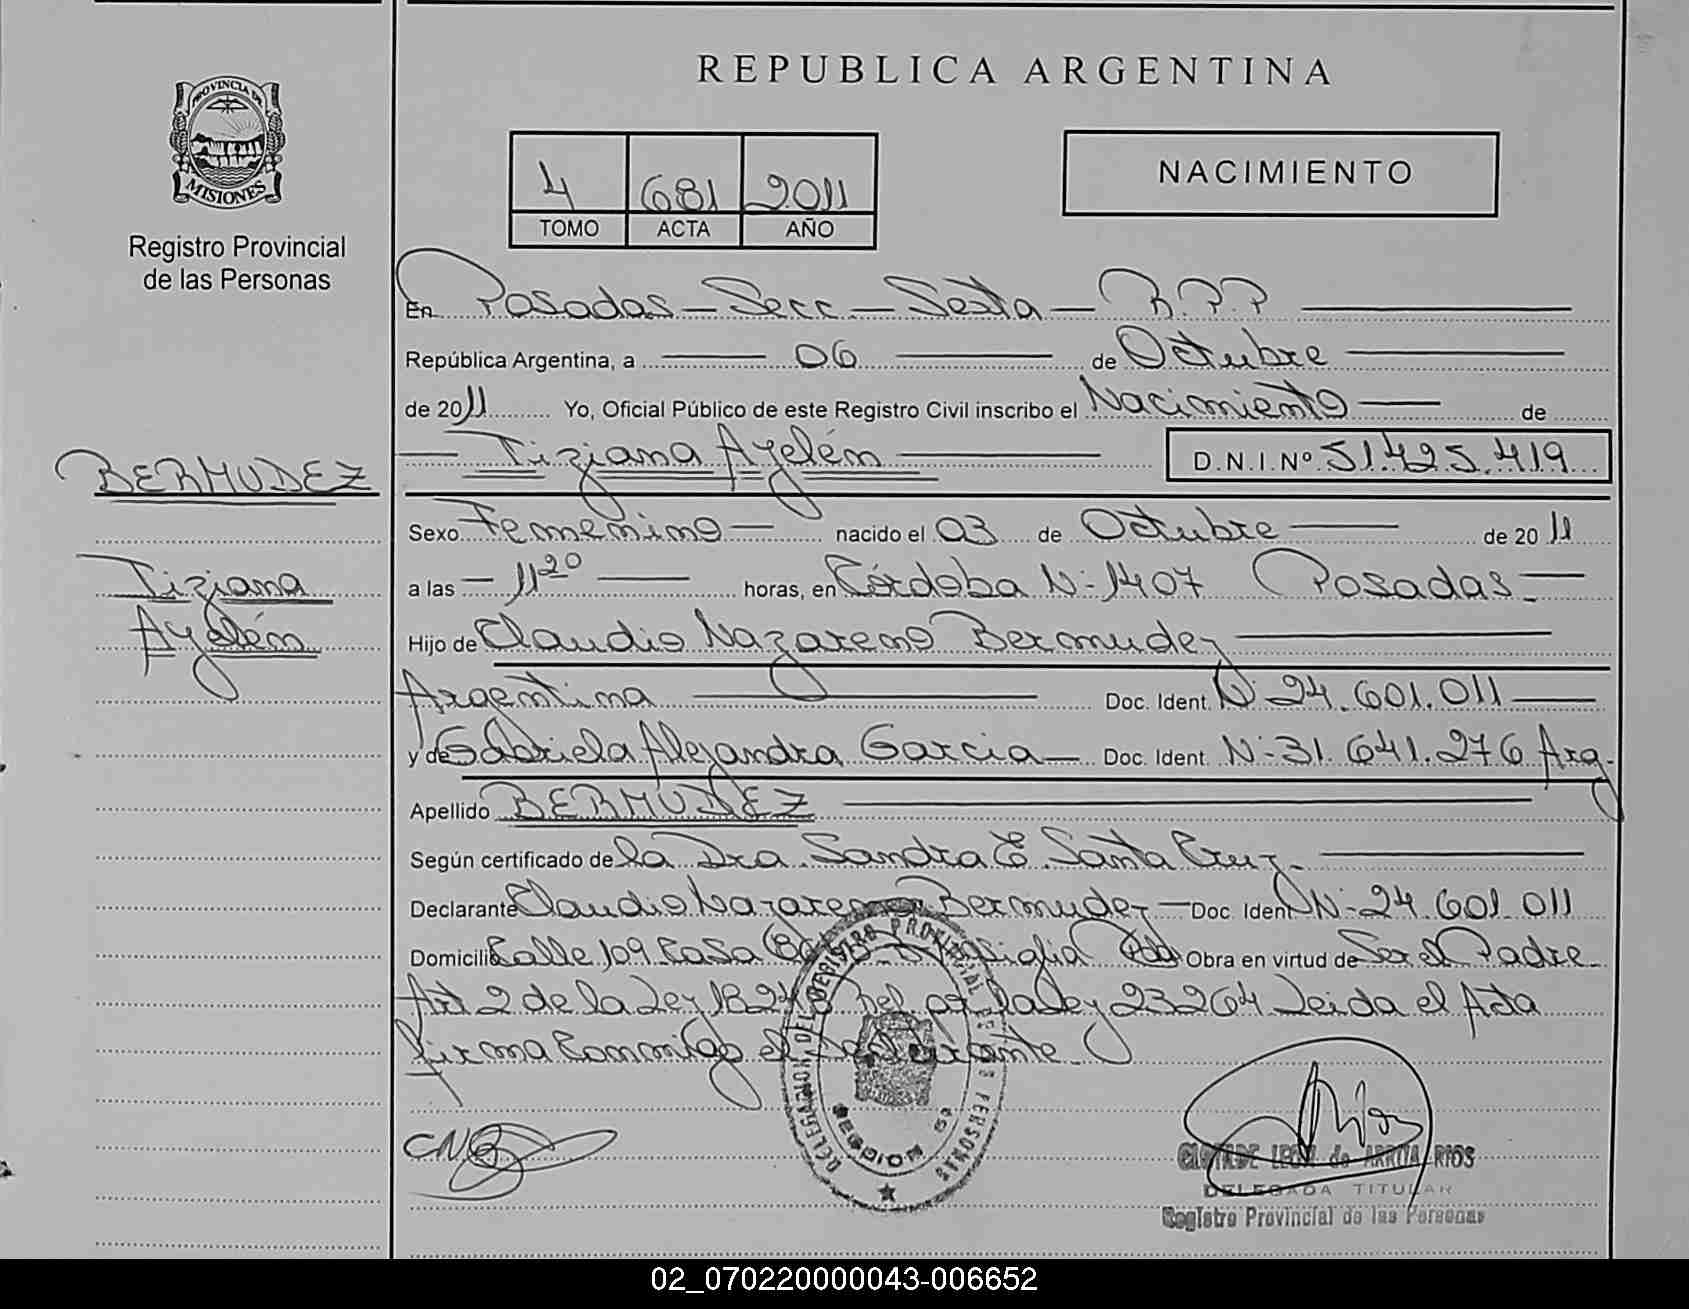 REPUBLICA ARGENTINA
PROVINCIA DE MISIONES
Registro Provincial
de las Personas
4 681 2011
TOMO ACTA AÑO
NACIMIENTO
En Posadas - Secc - Sexta - R.P.P
República Argentina, a 06 de Octubre
de 2011 Yo, Oficial Público de este Registro Civil inscribo el Nacimiento de
Tiziana Ayelén D.N.I.Nº 51.425.419
BERMUDEZ
Tiziana
Ayelén
Sexo Femenino nacido el 03 de Octubre de 2011
a las 11 20 horas, en Córdoba Nº 1407 Posadas
Hijo de Claudio Nazareno Bermudez
Argentina Doc. Ident. Nº 24.601.011
y de Gabriela Alejandra Garcia Doc. Ident. Nº 31.641.276 Arg.
Apellido BERMUDEZ
Según certificado de la Dra. Sandra E. Santa Cruz
Declarante Claudio Nazareno Bermudez Doc. Ident Nº 24.601.011
Domicilio Calle 109 Casa Obra en virtud de Ser el Padre
Art 2 de la Ley 1824 la Ley 23264 Leida el Acta
firma Conmigo el
DELEGACION DEL REGISTRO PROVINCIAL DE LAS PERSONAS
SECCION 6ª
CNB
CLOTILDE LEON de ARRITA RIOS
DELEGADA TITULAR
Registro Provincial de las Personas
02_070220000043-006652